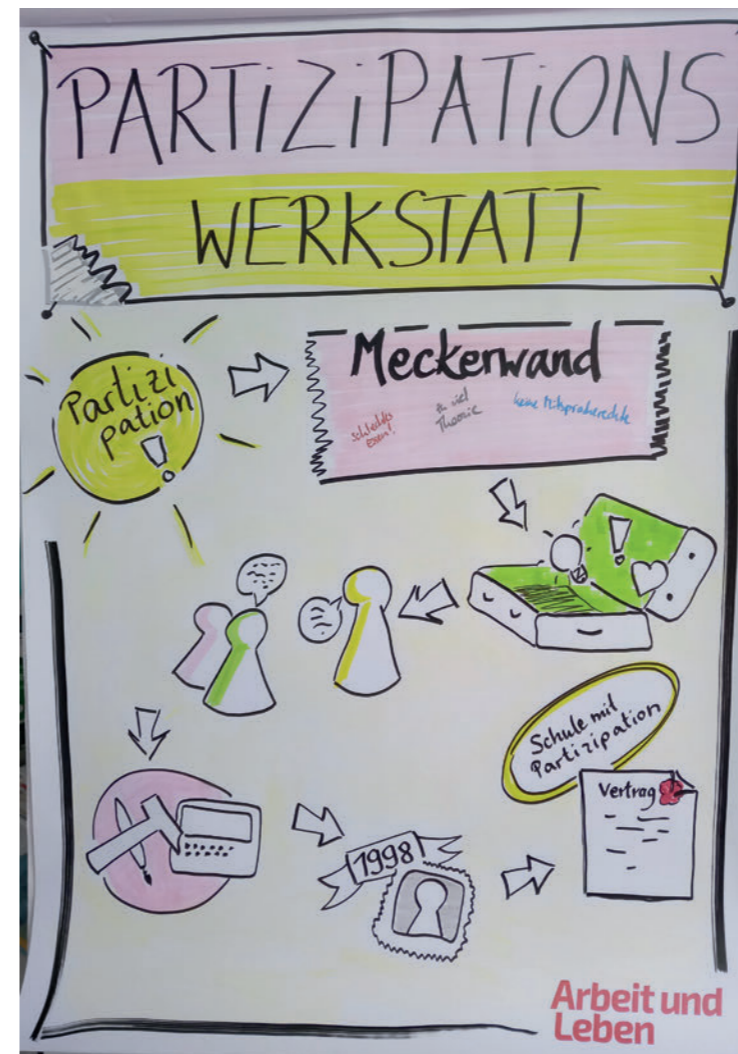 PARTiZiPATiONS
WERKSTATT
Partizi
pation
!
Meckerwand
schlechtes
essen!
zu viel
Theorie
keine Mitspracherechte
!
Schule mit
Partizipation
Vertrag
1998
Arbeit und
Leben